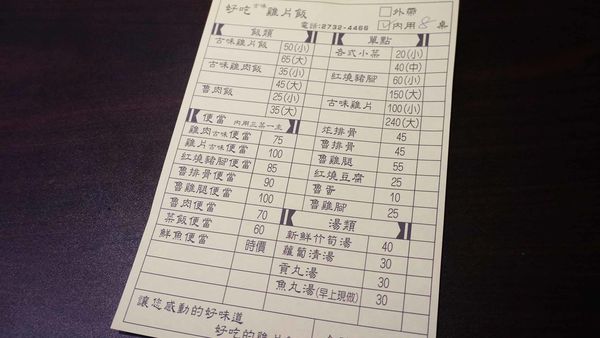 好吃古味雞片飯
□外帶
電話:2732-4466
☑內用 8 桌
飯類
古味雞片飯 50(小)
65(大)
古味雞肉飯 35(小)
45(大)
魯肉飯 25(小)
35(大)
便當 內用三菜一主
雞肉古味便當 75
雞片古味便當 100
紅燒豬腳便當 85
魯排骨便當 90
魯雞腿便當 100
魯肉便當 70
菜飯便當 60
鮮魚便當 時價
單點
各式小菜 20(小)
40(中)
紅燒豬腳 60(小)
150(大)
古味雞片 100(小)
240(大)
炸排骨 45
魯排骨 45
魯雞腿 55
紅燒豆腐 25
魯蛋 10
魯雞腳 25
湯類
新鮮竹筍湯 40
蘿蔔清湯 30
貢丸湯 30
魚丸湯(早上現做) 30
讓您感動的好味道
好吃的雞片飯